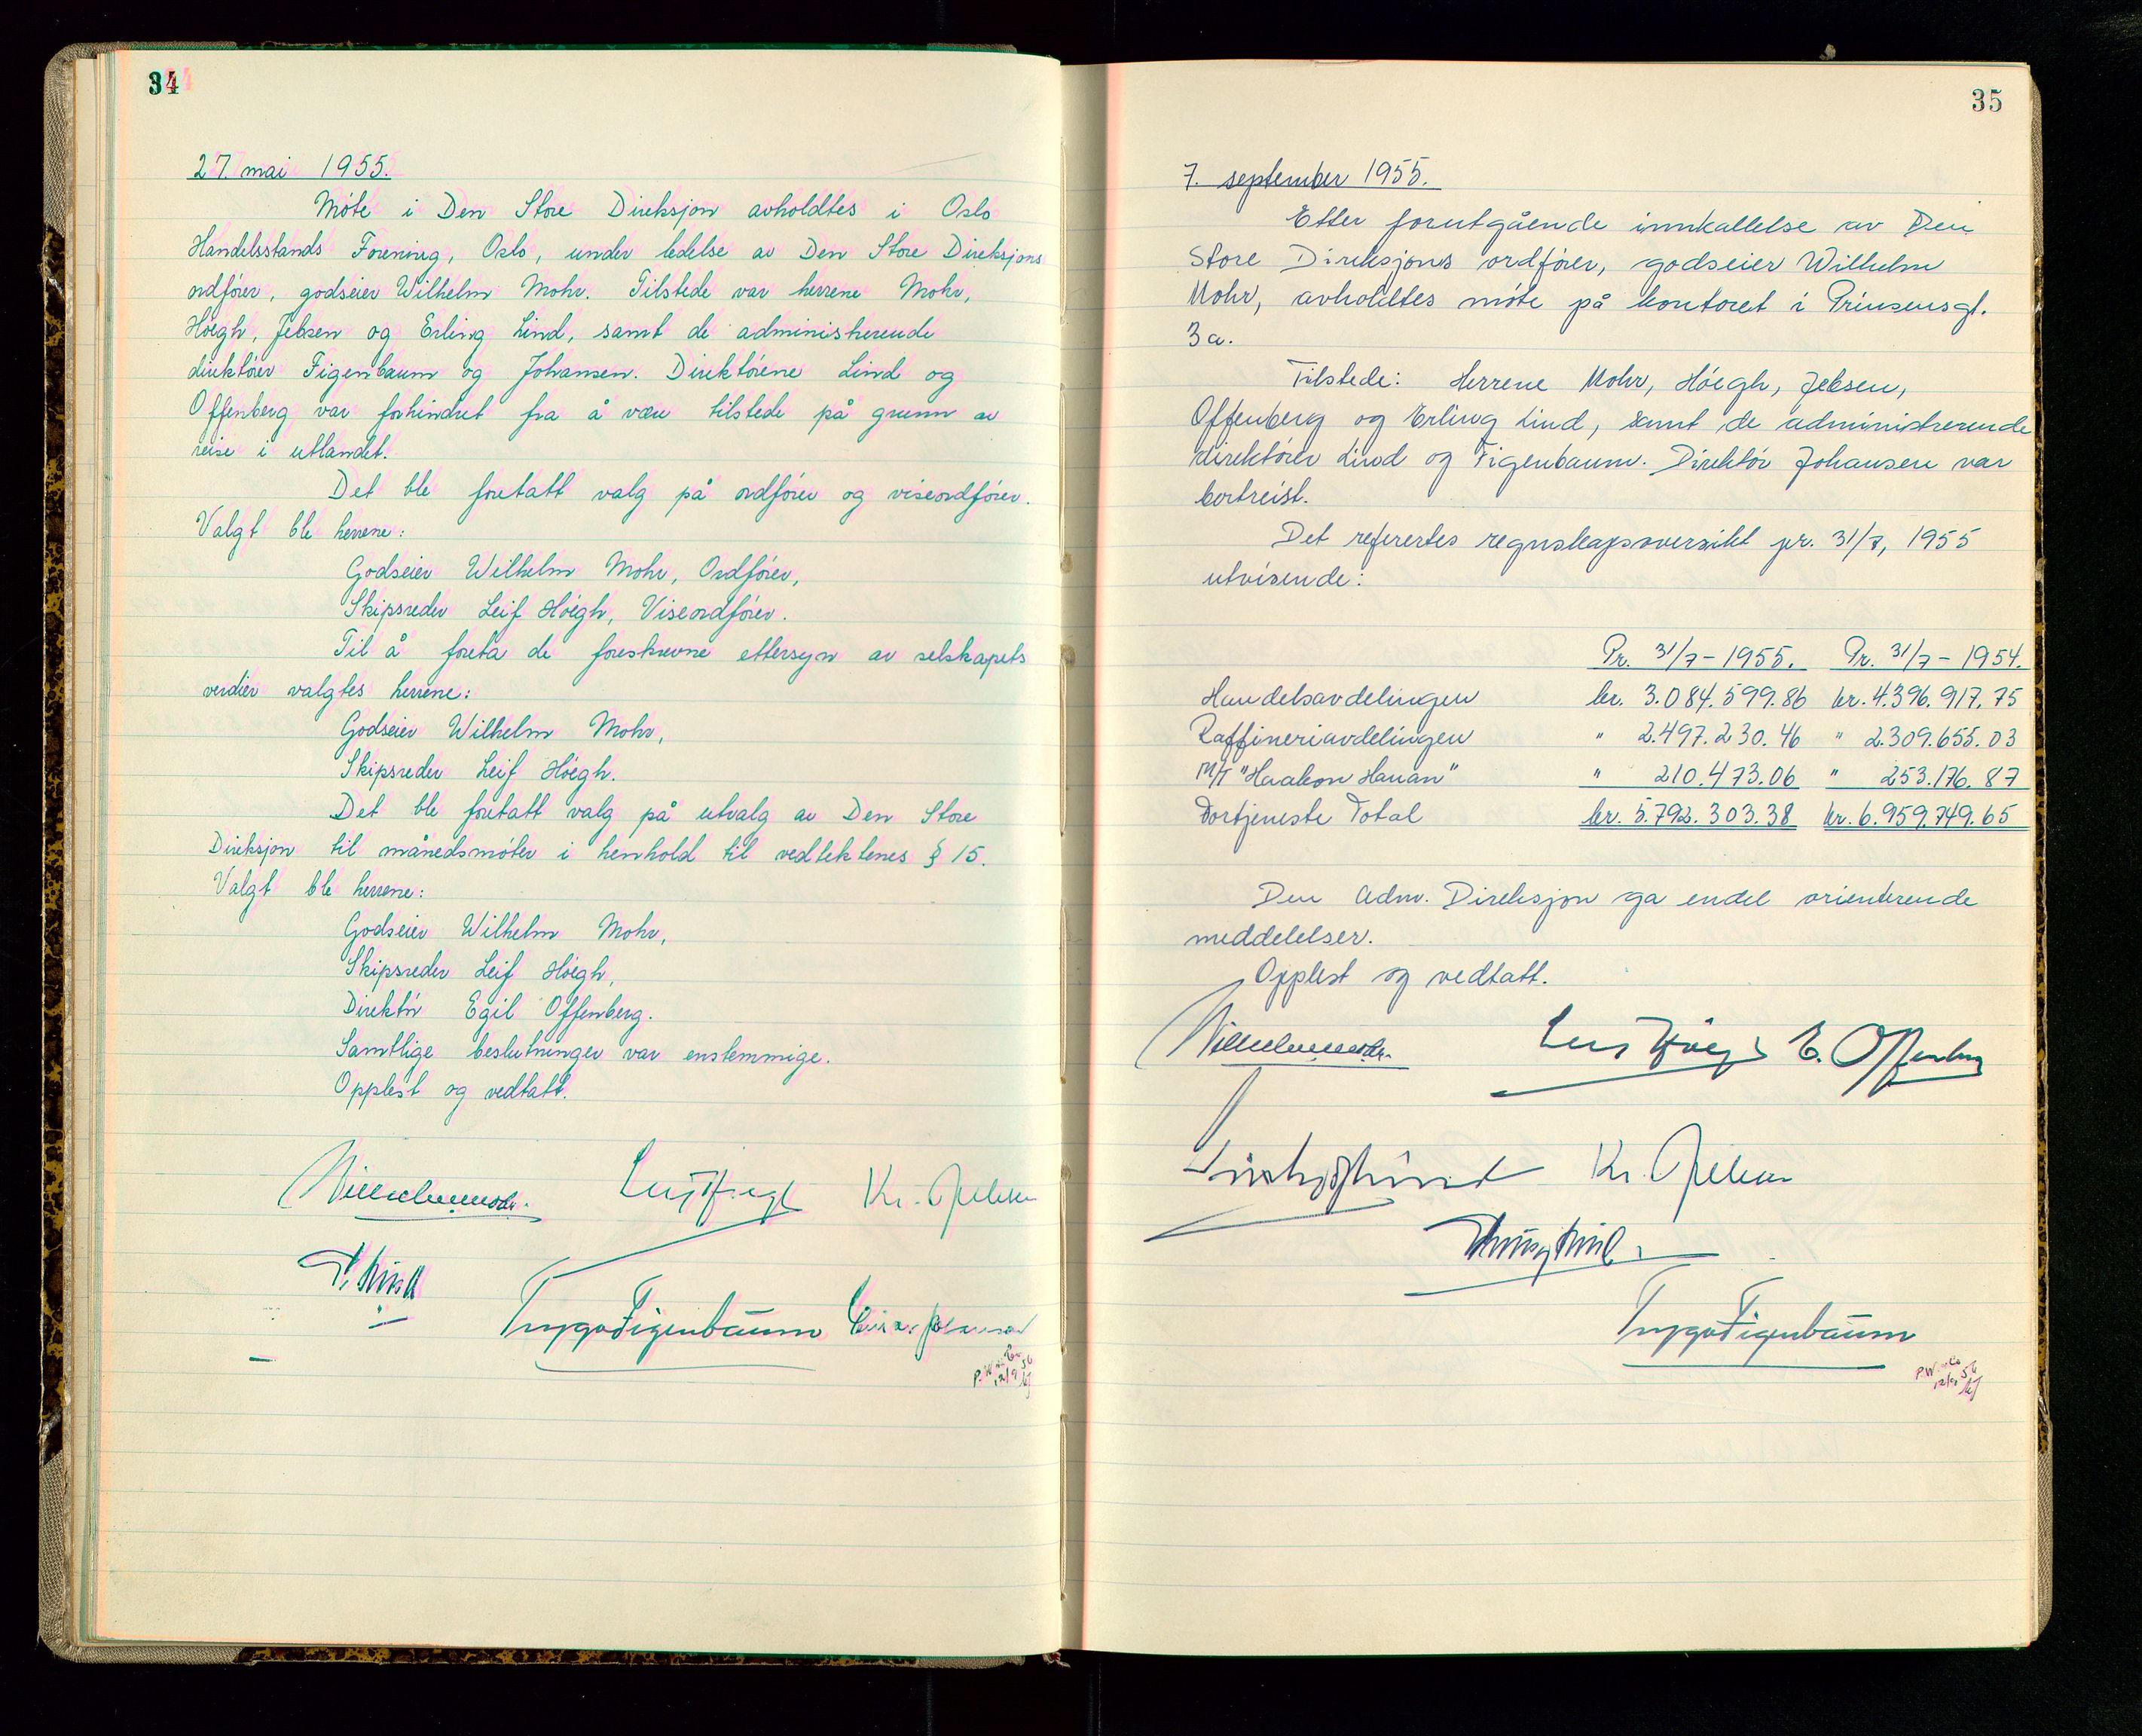 34
27. mai 1955.
Møte i Den Store Direksjon avholdtes i Oslo
Handelsstands Forening, Oslo, under ledelse av Den Store Direksjons
ordfører, godseier Wilhelm Mohr. Tilstede var herrene Mohr,
Høegh, Jebsen og Erling Lind, samt de administrerende
direktører Figenbaum og Johansen. Direktørene Lind og
Offenberg var forhindret fra å være tilstede på grunn av
reise i utlandet.
Det ble foretatt valg på ordfører og viseordfører.
Valgt ble herrene:
Godseier Wilhelm Mohr, Ordfører,
Skipsreder Leif Høegh, Viseordfører.
Til å foreta de foreskrevne ettersyn av selskapets
verdier valgtes herrene:
Godseier Wilhelm Mohr,
Skipsreder Leif Høegh.
Det ble foretatt valg på utvalg av Den Store
Direksjon til månedsmøter i henhold til vedtektenes § 15.
Valgt ble herrene:
Godseier Wilhelm Mohr,
Skipsreder Leif Høegh,
Direktør Egil Offenberg.
Samtlige beslutninger var enstemmige.
Opplest og vedtatt.
Wilhelm Mohr. Leif Høegh Kr. Jebsen
E. Lind
Trygve Figenbaum Einar Johansen
35
7. september 1955.
Etter forutgående innkallelse av Den
Store Direksjons ordfører, godseier Wilhelm
Mohr, avholdtes møte på kontoret i Prinsensgt.
3a.
Tilstede: Herrene Mohr, Høegh, Jebsen,
Offenberg og Erling Lind, samt de administrerende
direktører Lind og Figenbaum. Direktør Johansen var
bortreist.
Det referertes regnskapsoversikt pr. 31/7, 1955
utvisende:
Pr. 31/7 - 1955. Pr. 31/7 - 1954.
Handelsavdelingen kr. 3.084.599.86 kr. 4.396.917.75
Raffineriavdelingen " 2.497.230.46 " 2.309.655.03
M/T "Haakon Hauan" " 210.473.06 " 253.176.87
Fortjeneste Total kr. 5.792.303.38 kr. 6.959.749.65
Den Adm. Direksjon ga endel orienterende
meddelelser.
Opplest og vedtatt.
Wilhelm Mohr. Leif Høegh E. Offenberg
Kr. Jebsen
Erling Lind
Trygve Figenbaum